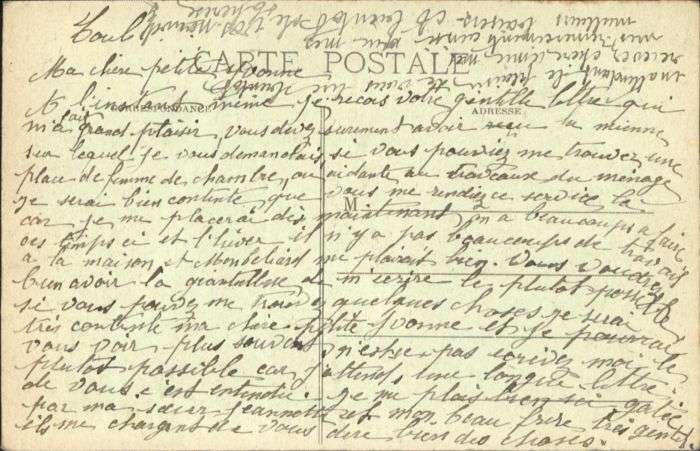 Toul
CARTE POSTALE
Ma chère petite Yvonne
CORRESPONDANCE
ADRESSE
A l'instant même je reçois votre gentille lettre qui
m'a fait grand plaisir, vous devez surement avoir la mienne
sur lequel je vous demandais, si vous pouviez me trouvez une
place de femme de chambre, ou aidante au travaux du menage
je serai bien contente que vous me rendiez se service la
M
car je me placerai dès maintenant, on a beaucoups a faire
ces temps ci et l'hiver il n'y a pas beaucoups de travail
a la maison et Montbeliard me plairait bien. Vous voudrez
bien avoir la giantillesse de m'ecrire le plutot possible
si vous pouvez me trouvez quelques choses je serai
très contente ma chère petite Yvonne et je pourrai
vous voir plus souvent n'est-ce pas ecrivez moi le
plutot possible car j'attends une longue lettre
de vous c'est entendu. je me plais bien ici
par ma sœur Jeannette et mon beau frère très gentil.
ils me chargent de vous dire bien des choses.
en attendant le plaisir de vous lire
recevez chère amie mes
remerciements ainsi que mes
meilleurs baisers et